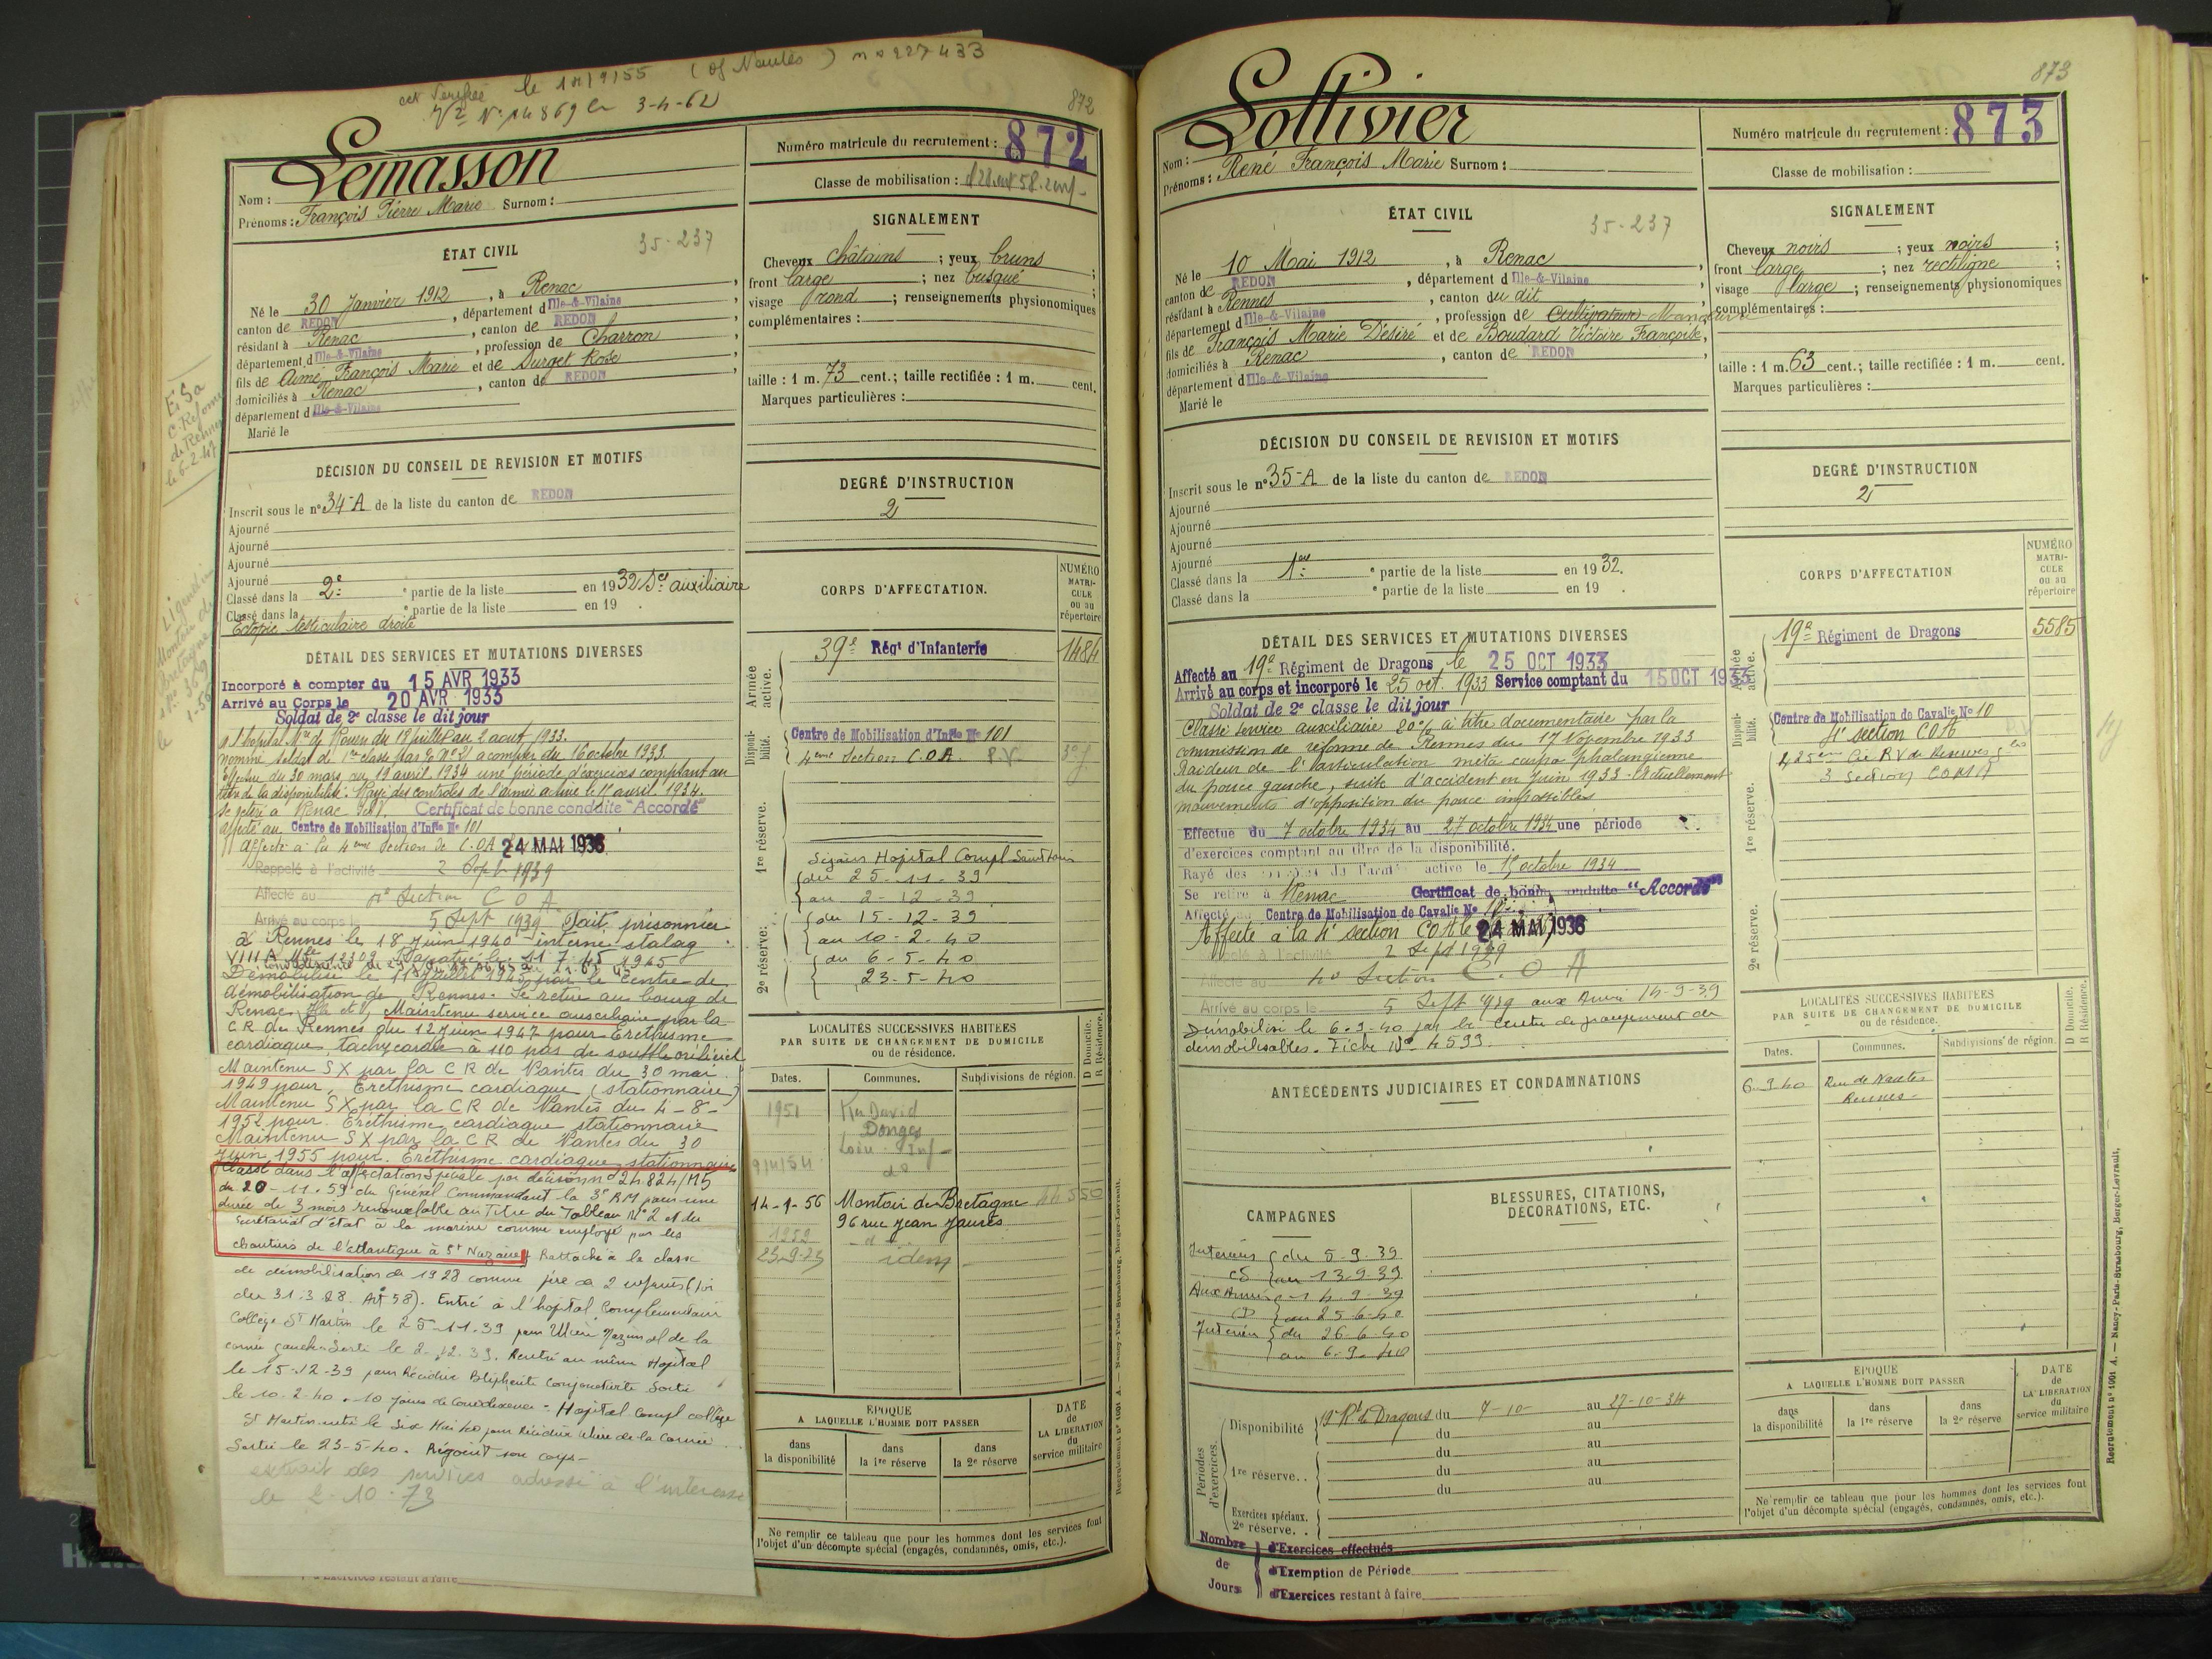 le 1 9/55 (of Nantes) n° 227433
N° 14869 le 3-4-62
872
Nom : Lemasson
Prénoms : François Pierre Marie Surnom :
Numéro matricule du recrutement : 872
Classe de mobilisation :
ÉTAT CIVIL
35-237
Né le 30 Janvier 1912, à Renac,
canton de REDON, département d Ille-&-Vilaine
résidant à Renac, canton de REDON,
département d Ille-&-Vilaine, profession de Charron
fils de Aimé François Marie et de Surget Rose
domiciliés à Renac, canton de REDON,
département d Ille-&-Vilaine
Marié le
SIGNALEMENT
Cheveux châtains ; yeux bruns ;
front large ; nez busqué ;
visage rond ; renseignements physionomiques
complémentaires :
taille : 1 m. 73 cent.; taille rectifiée : 1 m. cent.
Marques particulières :
DÉCISION DU CONSEIL DE REVISION ET MOTIFS
Inscrit sous le n° 34-A de la liste du canton de REDON
Ajourné
Ajourné
Ajourné
Ajourné
Classé dans la 2e partie de la liste en 1932 Sce auxiliaire
Classé dans la e partie de la liste en 19 .
Ectopie testiculaire droite
DEGRÉ D'INSTRUCTION
2
DÉTAIL DES SERVICES ET MUTATIONS DIVERSES
Incorporé à compter du 15 AVR 1933
Arrivé au Corps le 20 AVR 1933
Soldat de 2e classe le dit jour
à l'hôpital Mre de Rouen du 19 juillet au 2 août 1933.
nommé soldat de 1ère classe à compter du 16 octobre 1933.
Effectue du 30 mars au 19 avril 1934 une période d'exercices comptant au
titre de la disponibilité. Rayé des contrôles de l'armée active le 15 avril 1934.
Se retire à Renac I&V. Certificat de bonne conduite "Accordé"
affecté au Centre de Mobilisation d'Infie No 101
Affecté à la 4eme Section de C.O.A 24 MAI 1938
Rappelé à l'activité 2 Sept 1939
Affecté au 4e Section C O A
Arrivé au corps le 5 Sept 1939. Fait prisonnier
à Rennes le 18 Juin 1940 interné stalag
VIII A Mle 12309 Rapatrié le 11 7 45 1945
Démobilisé le 11 Juillet 1945 par le Centre de
démobilisation de Rennes. Se retire au bourg de
Renac Ille et V. Maintenu service auxiliaire par la
C R de Rennes du 12 Juin 1947 pour Eréthisme
cardiaque, tachycardie à 110 pas de souffle orificiel
Maintenu SX par la C R de Nantes du 30 mai
1949 pour Eréthisme cardiaque (stationnaire)
Maintenu SX par la C R de Nantes du 4-8-
1952 pour Eréthisme cardiaque stationnaire
Maintenu SX par la C R de Nantes du 30
Juin 1955 pour. Eréthisme cardiaque stationnaire
Classé dans l'affectation Spéciale par décision n° 24.824/M5
du 20-11-53 du Général Commandant la 3e RM pour une
durée de 3 mois renouvelable au Titre du Tableau N° 2 et du
Secrétariat d'état à la marine comme employé par les
chantiers de l'atlantique à St Nazaire Rattaché à la classe
de démobilisation de 1928 comme père de 2 enfants (loi
du 31.3.28 Art 58). Entré à l'hopital Complémentaire
Collège St Martin le 25-11-39 pour Ulcère de la
cornée gauche Sorti le 2.12.39. Rentré au même Hopital
le 15-12-39 pour Récidive Blépharite Conjonctivite Sorti
le 10-2-40. 10 jours de Convalescence - Hopital Compl collège
St Martin entré le Six Mai 40 pour Récidive Ulcère de la Cornée
Sorti le 23-5-40. Rejoint son corps-
extrait des services adressé à l'intéressé
le 2-10-73
CORPS D'AFFECTATION.
NUMÉRO MATRICULE ou au répertoire
Armée active.
39e Régt d'Infanterie 1484
Disponibilité.
Centre de Mobilisation d'Infie No 101
4eme Section C.O.A. R.V.
1re réserve.
Séjours Hopital Compl Saint Louis
du 25-11-39
au 2-12-39
du 15-12-39
au 10-2-40
2e réserve.
du 6-5-40
23-5-40
LOCALITÉS SUCCESSIVES HABITÉES
PAR SUITE DE CHANGEMENT DE DOMICILE
ou de résidence.
D Domicile.
R Résidence.
Dates. Communes. Subdivisions de région.
1951 Ker David
Donges
Loire Inf-
9/11/54 do
14-1-56 Montoir de Bretagne 44 550
96 rue Jean Jaurès
1959 - d -
23-9-73 idem
ÉPOQUE
A LAQUELLE L'HOMME DOIT PASSER
DATE
de
LA LIBÉRATION
du
service militaire
dans la disponibilité
dans la 1re réserve
dans la 2e réserve
Ne remplir ce tableau que pour les hommes dont les services font
l'objet d'un décompte spécial (engagés, condamnés, omis, etc.).
Recrutement n° 1001 A. — Nancy-Paris-Strasbourg, Berger-Levrault.
873
Nom : Lollivier
Prénoms : René François Marie Surnom :
Numéro matricule du recrutement : 873
Classe de mobilisation :
ÉTAT CIVIL
35-237
Né le 10 Mai 1912, à Renac,
canton de REDON, département d Ille-&-Vilaine
résidant à Rennes, canton du dit
département d Ille-&-Vilaine, profession de Cultivateur Manœuvre
fils de François Marie Désiré et de Boudard Victoire Françoise,
domiciliés à Renac, canton de REDON,
département d Ille-&-Vilaine
Marié le
SIGNALEMENT
Cheveux noirs ; yeux noirs ;
front large ; nez rectiligne ;
visage large ; renseignements physionomiques
complémentaires :
taille : 1 m. 63 cent.; taille rectifiée : 1 m. cent.
Marques particulières :
DÉCISION DU CONSEIL DE REVISION ET MOTIFS
Inscrit sous le n° 35-A de la liste du canton de REDON
Ajourné
Ajourné
Ajourné
Ajourné
Classé dans la 1ere partie de la liste en 1932.
Classé dans la e partie de la liste en 19 .
DEGRÉ D'INSTRUCTION
2
DÉTAIL DES SERVICES ET MUTATIONS DIVERSES
Affecté au 19e Régiment de Dragons, le 25 OCT 1933
Arrivé au corps et incorporé le 25 oct. 1933 Service comptant du 15 OCT 1933
Soldat de 2e classe le dit jour
Classé service auxiliaire 20% à titre documentaire par la
commission de réforme de Rennes du 17 Novembre 1933
Raideur de l'articulation méta carpo phalangienne
du pouce gauche, suite d'accident en Juin 1933 - Actuellement
mouvements d'opposition du pouce impossibles
Effectue du 7 octobre 1934 au 27 octobre 1934 une période
d'exercices comptant au titre de la disponibilité.
Rayé des contrôles de l'armée active le 15 octobre 1934
Se retire à Renac Certificat de bonne conduite "Accordé"
Affecté au Centre de Mobilisation de Cavalie No 10
Affecté à la 4e section COA le 24 MAI 1938
2 Sept 1939
Affecté au 4e Section C. O A
Arrivé au corps le 5 Sept 1939 aux Armées 14-9-39
Démobilisé le 6-9-40 par le Centre de groupement de
démobilisables. Fiche N° 4599.
ANTÉCÉDENTS JUDICIAIRES ET CONDAMNATIONS
CAMPAGNES
Intérieur du 5-9-39
CS au 13-9-39
Aux Armées 14-9-39
au 25-6-40
Intérieur du 26-6-40
au 6-9-40
BLESSURES, CITATIONS,
DÉCORATIONS, ETC.
Périodes d'exercices.
Disponibilité 19e Rt de Dragons du 7-10- au 27-10-34
du au
du au
1re réserve.. du au
du au
Exercices spéciaux.
2e réserve. .
Nombre de Jours
d'Exercices effectués
d'Exemption de Période
d'Exercices restant à faire
CORPS D'AFFECTATION
NUMÉRO MATRICULE ou au répertoire
Armée active.
19e Régiment de Dragons 5585
Disponibilité.
Centre de Mobilisation de Cavalie No 10
4e section COA
3 Section COMA
1re réserve.
2e réserve.
LOCALITÉS SUCCESSIVES HABITÉES
PAR SUITE DE CHANGEMENT DE DOMICILE
ou de résidence.
D Domicile.
R Résidence.
Dates. Communes. Subdivisions de région.
6-9-40 Rue de Nantes
Rennes-
ÉPOQUE
A LAQUELLE L'HOMME DOIT PASSER
DATE
de
LA LIBÉRATION
du
service militaire
dans la disponibilité
dans la 1re réserve
dans la 2e réserve
Ne remplir ce tableau que pour les hommes dont les services font
l'objet d'un décompte spécial (engagés, condamnés, omis, etc.).
Recrutement n° 1001 A. — Nancy-Paris-Strasbourg, Berger-Levrault.